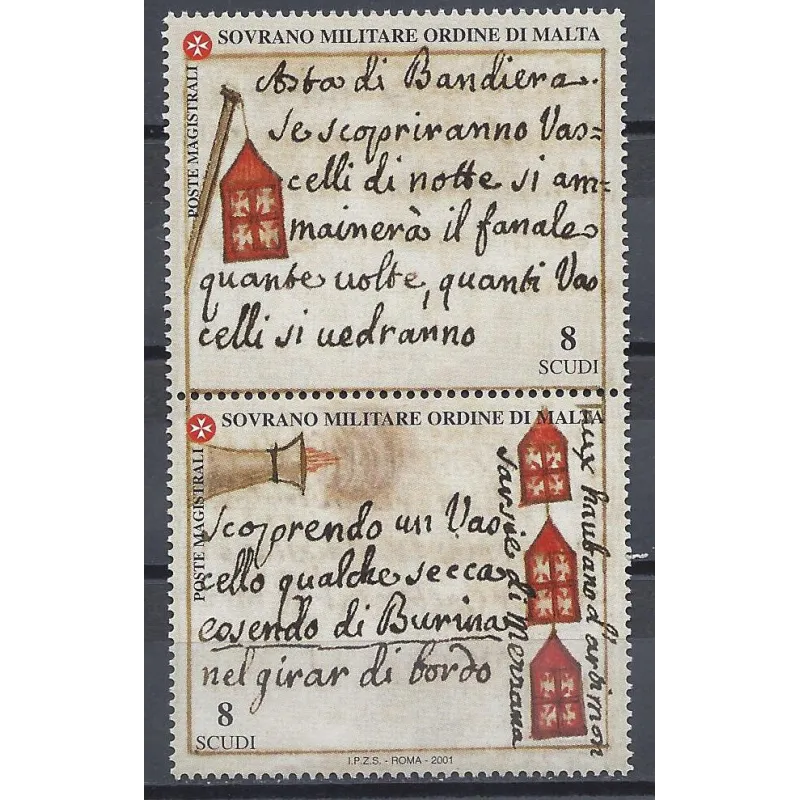 SOVRANO MILITARE ORDINE DI MALTA
POSTE MAGISTRALI
Asta di Bandiera.
se scopriranno Vas=
celli di notte si am=
mainerà il fanale
quante volte, quanti Vas
celli si vedranno
8
SCUDI
SOVRANO MILITARE ORDINE DI MALTA
POSTE MAGISTRALI
scoprendo un Vas
cello qualche secca
essendo di Burina
nel girar di bordo
sarsie di mezzana
aux haubans d'artimon
8
SCUDI
I.P.Z.S. - ROMA - 2001